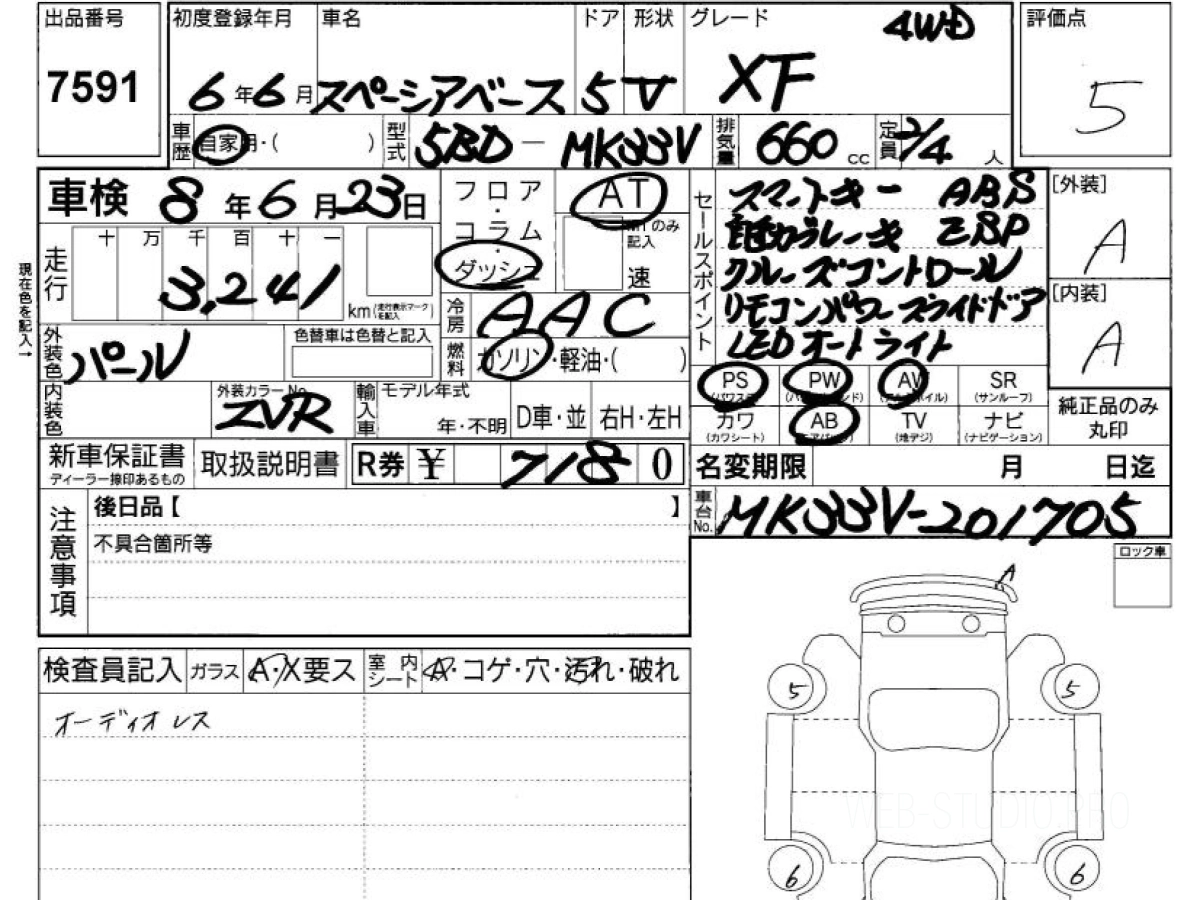 出品番号 初度登録年月 車名 ドア 形状 グレード 4WD 評価点
7591 6年6月 スペーシアベース 5 V XF 5
車歴 自家用・( ) 型式 5BD-MK33V 排気量 660cc 定員 2/4人
車検 8年6月23日 フロア・コラム・ダッシュ AT MTのみ記入 速
セールスポイント スマートキー ABS
自動ブレーキ ESP
クルーズコントロール
リモコンパワースライドドア
LEDオートライト
[外装] A
[内装] A
現在色を記入→
走行 十 万 千 百 十 一
3,241 km (走行表示マークを記入)
冷房 AAC
外装色 パール 色替車は色替と記入 燃料 ガソリン・軽油・( )
PS (パワステ) PW (パワーウインド) AW (アルミホイル) SR (サンルーフ)
カワ (カワシート) AB (エアバッグ) TV (地デジ) ナビ (ナビゲーション)
純正品のみ丸印
内装色 外装カラーNo. ZVR 輸入車 モデル年式 年・不明 D車・並 右H・左H
新車保証書 ディーラー捺印あるもの 取扱説明書 R券 ¥ 7180 名変期限 月 日迄
注意事項 後日品【 】 車台No. MK33V-201705
不具合箇所等
ロック車
A
検査員記入 ガラス A・X要ス 室内シート A・コゲ・穴・汚れ・破れ
オーディオレス
5 5
WEB-STUDIO.PRO
6 6